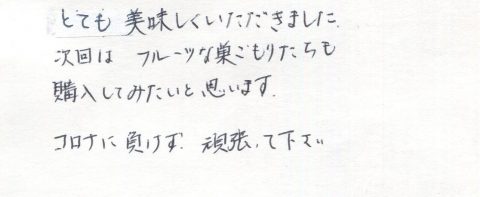 とても美味しくいただきました.
次回は フルーツな巣ごもりたちも
購入してみたいと思います.
コロナに負けず. 頑張って下さい